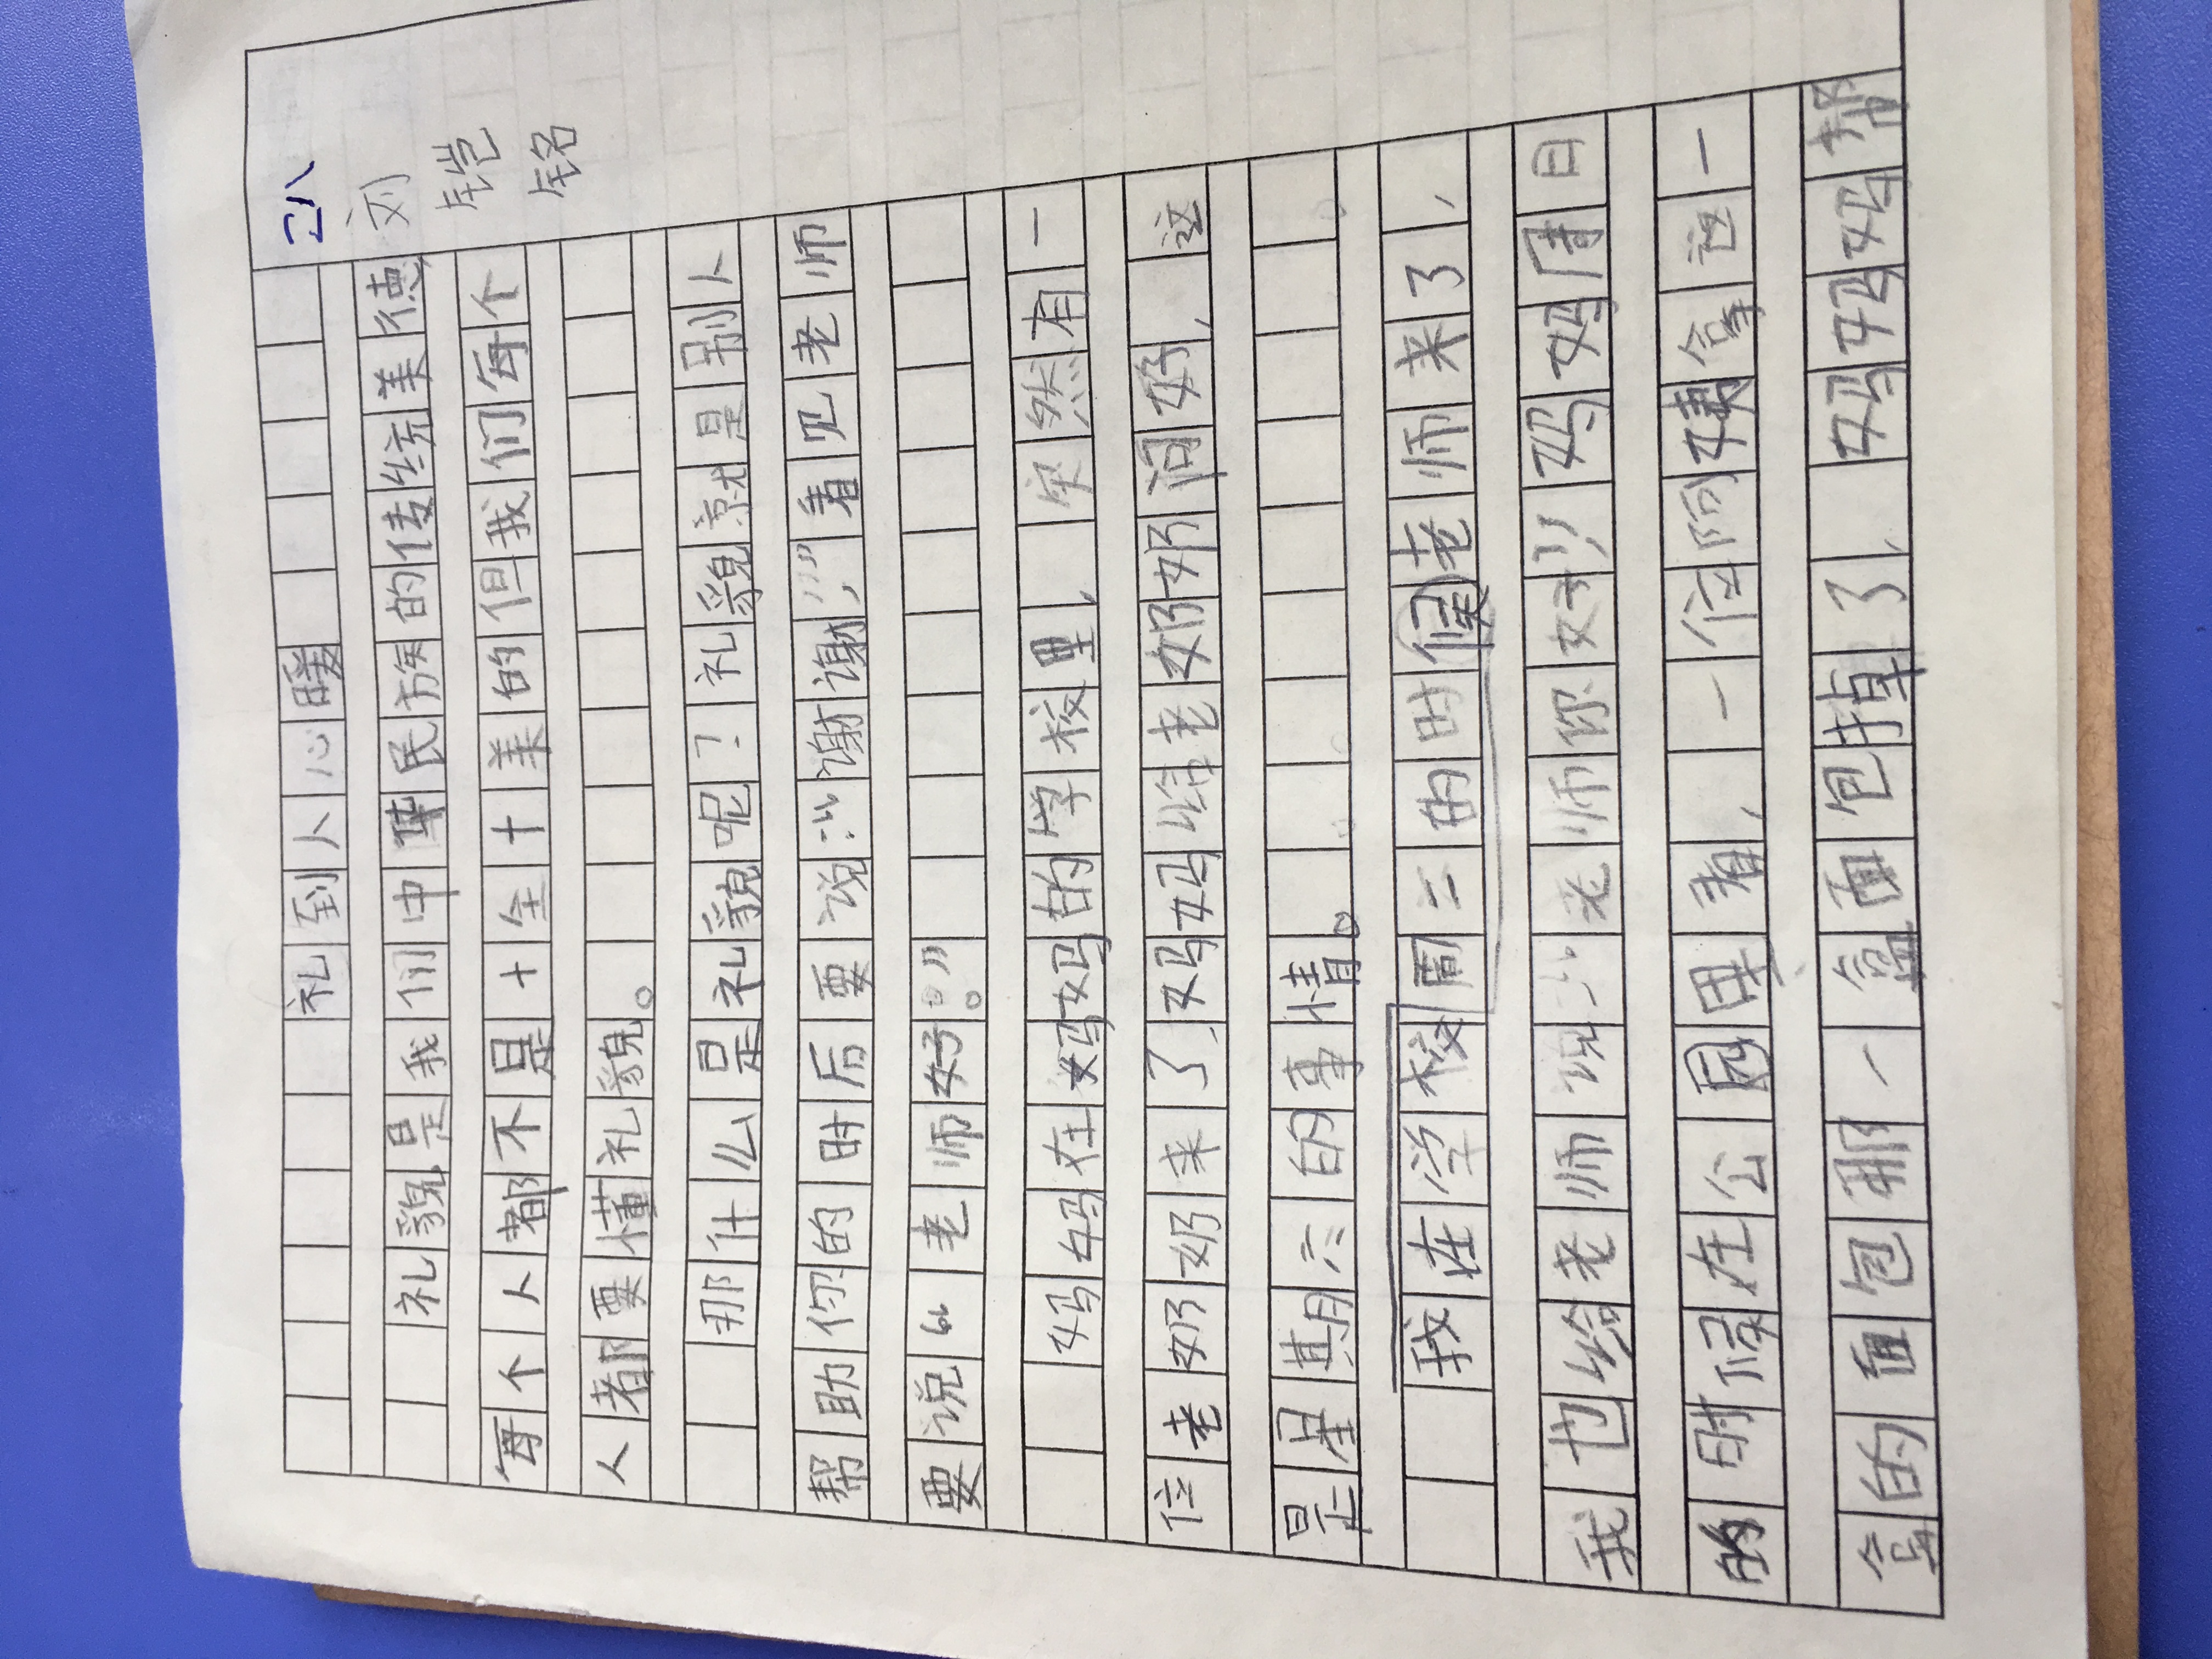 二八
刘铠铭
礼到人心暖
礼貌是我们中华民族的传统美德
每个人都不是十全十美的但我们每个
人都要懂礼貌。
那什么是礼貌呢?礼貌就是别人
帮助你的时后要说:“谢谢,”看见老师
要说“老师好。”
妈妈在妈妈的学校里,突然有一
位老奶奶来了,妈妈给老奶奶问好,这
是星期六的事情。
我在学校周二的时候老师来了,
我也给老师说:“老师你好”妈妈周日
的时候在公园里看,一位阿姨拿这一
盒的面包那一盒面包掉了,妈妈妈帮